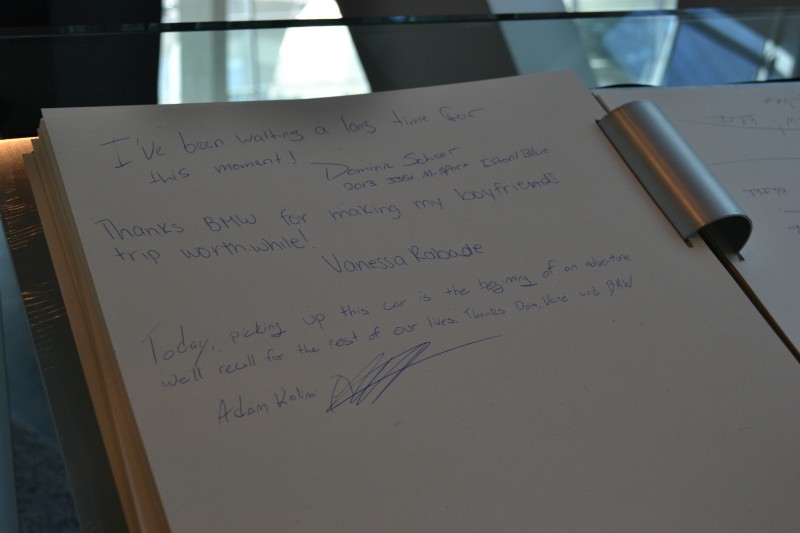 I've been waiting a long time for
this moment!
Dominic
2013 335i M. Sport Estoril Blue
Thanks BMW for making my boyfriends
trip worthwhile!
Vanessa Robade
Today, picking up this car is the beginning of an adventure
we'll recall for the rest of our lives. Thanks Dom, Vane und BMW
Adam Kolim